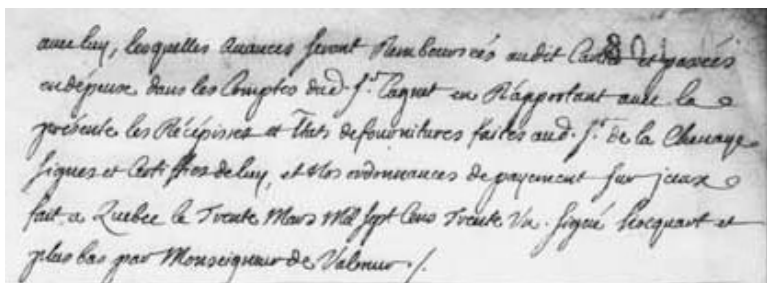 avec luy, lesquelles avances seront Remboursées audit et passées
en dépense dans les Comptes dud. Sr. Taquet en Rapportant avec la
présente les Récépissés et Etats de fournitures faites aud. Sr. de la Chenaye
signés et Certiffiés de luy, et Nos ordonnances de payement sur iceux
fait a Quebec le Trente Mars Mil Sept Cens Trente Un. signé hocquart et
plus bas par Monseigneur de Valmur ./.